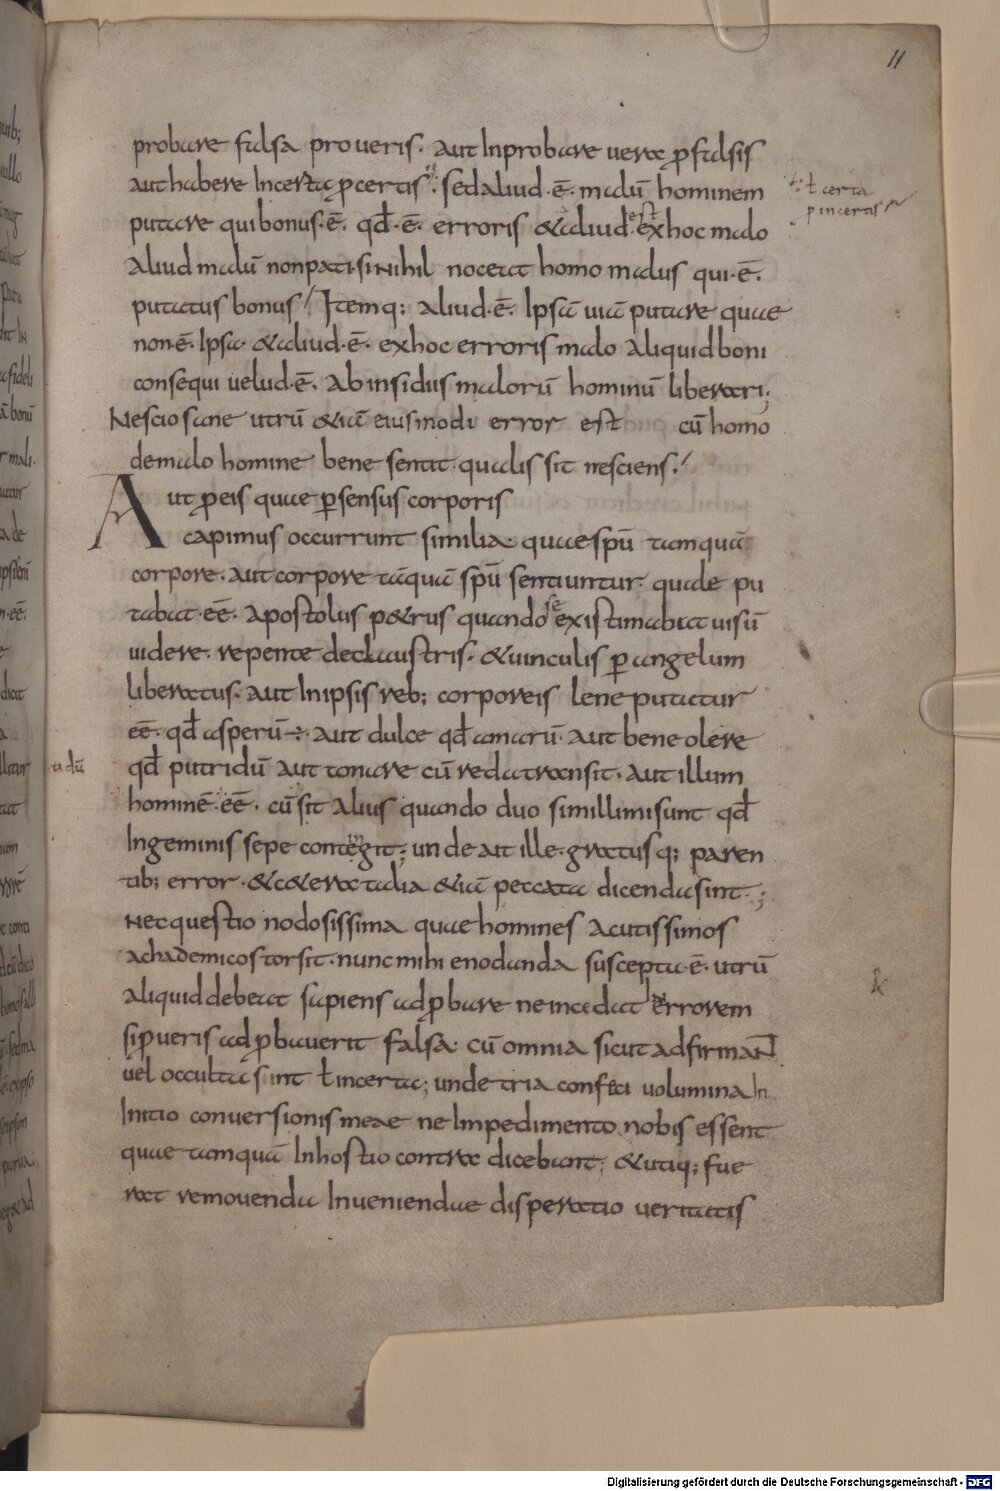 11
probare falsa pro ueris. aut Inprobare uera ꝓ falsis
aut habere Incerta ꝓ certis. sed aliud.ē. malū hominem
ł certa
p incertis
putare qui bonus.ē. qđ.ē. erroris & aliud est ex hoc malo
aliud malū non pati. si nihil noceat homo malus qui.ē.
putatus bonus/ Itemq; aliud.ē. Ipsā uiā putare quae
non.ē. Ipsa. & aliud.ē. ex hoc erroris malo aliquid boni
consequi uelud.ē. ab insidiis malorū hominū liberari.
Nescio sane utrū &iā eiusmodi error est cū homo
de malo homine bene sentit qualis sit nesciens./
Aut ꝓ eis quae ꝑ sensus corporis
capimus occurrunt similia quae spū tamquā
corpore. aut corpore tāquā spū sentiuntur quale pu
tabat.eē. apostolus p&rus quando se existimabat uisū
uidere. repente de claustris. & uinculis ꝑ angelum
liberatus. aut In ipsis reb; corporeis lene putatur
eē. qđ asperū ÷. aut dulce qđ amarū. aut bene olere
qđ putridū aut tonare cū reda transit. aut illum
hominē.eē. cū sit alius quando duo simillimi sunt qđ
In geminis sepe contegit; unde ait ille. gratusq; paren
tib; error. & c&era talia &iā peccata dicenda sint.;
Nec questio nodosissima quae homines acutissimos
achademicos torsit. nunc mihi enodanda suscepta.ē. utrū
aliquid debeat sapiens adꝓbare ne incidat In errorem
si ꝓ ueris adꝓbauerit falsa. cū omnia sicut adfirmant
uel occulta sint ł incerta; unde tria confeci uolumina In
Initio conuersionis meae ne Impedimento nobis essent
quae tamquā In hostio contra dicebant; & utiq; fue
rat remouenda Inueniendae disperatio ueritatis
Digitalisierung gefördert durch die Deutsche Forschungsgemeinschaft - DFG